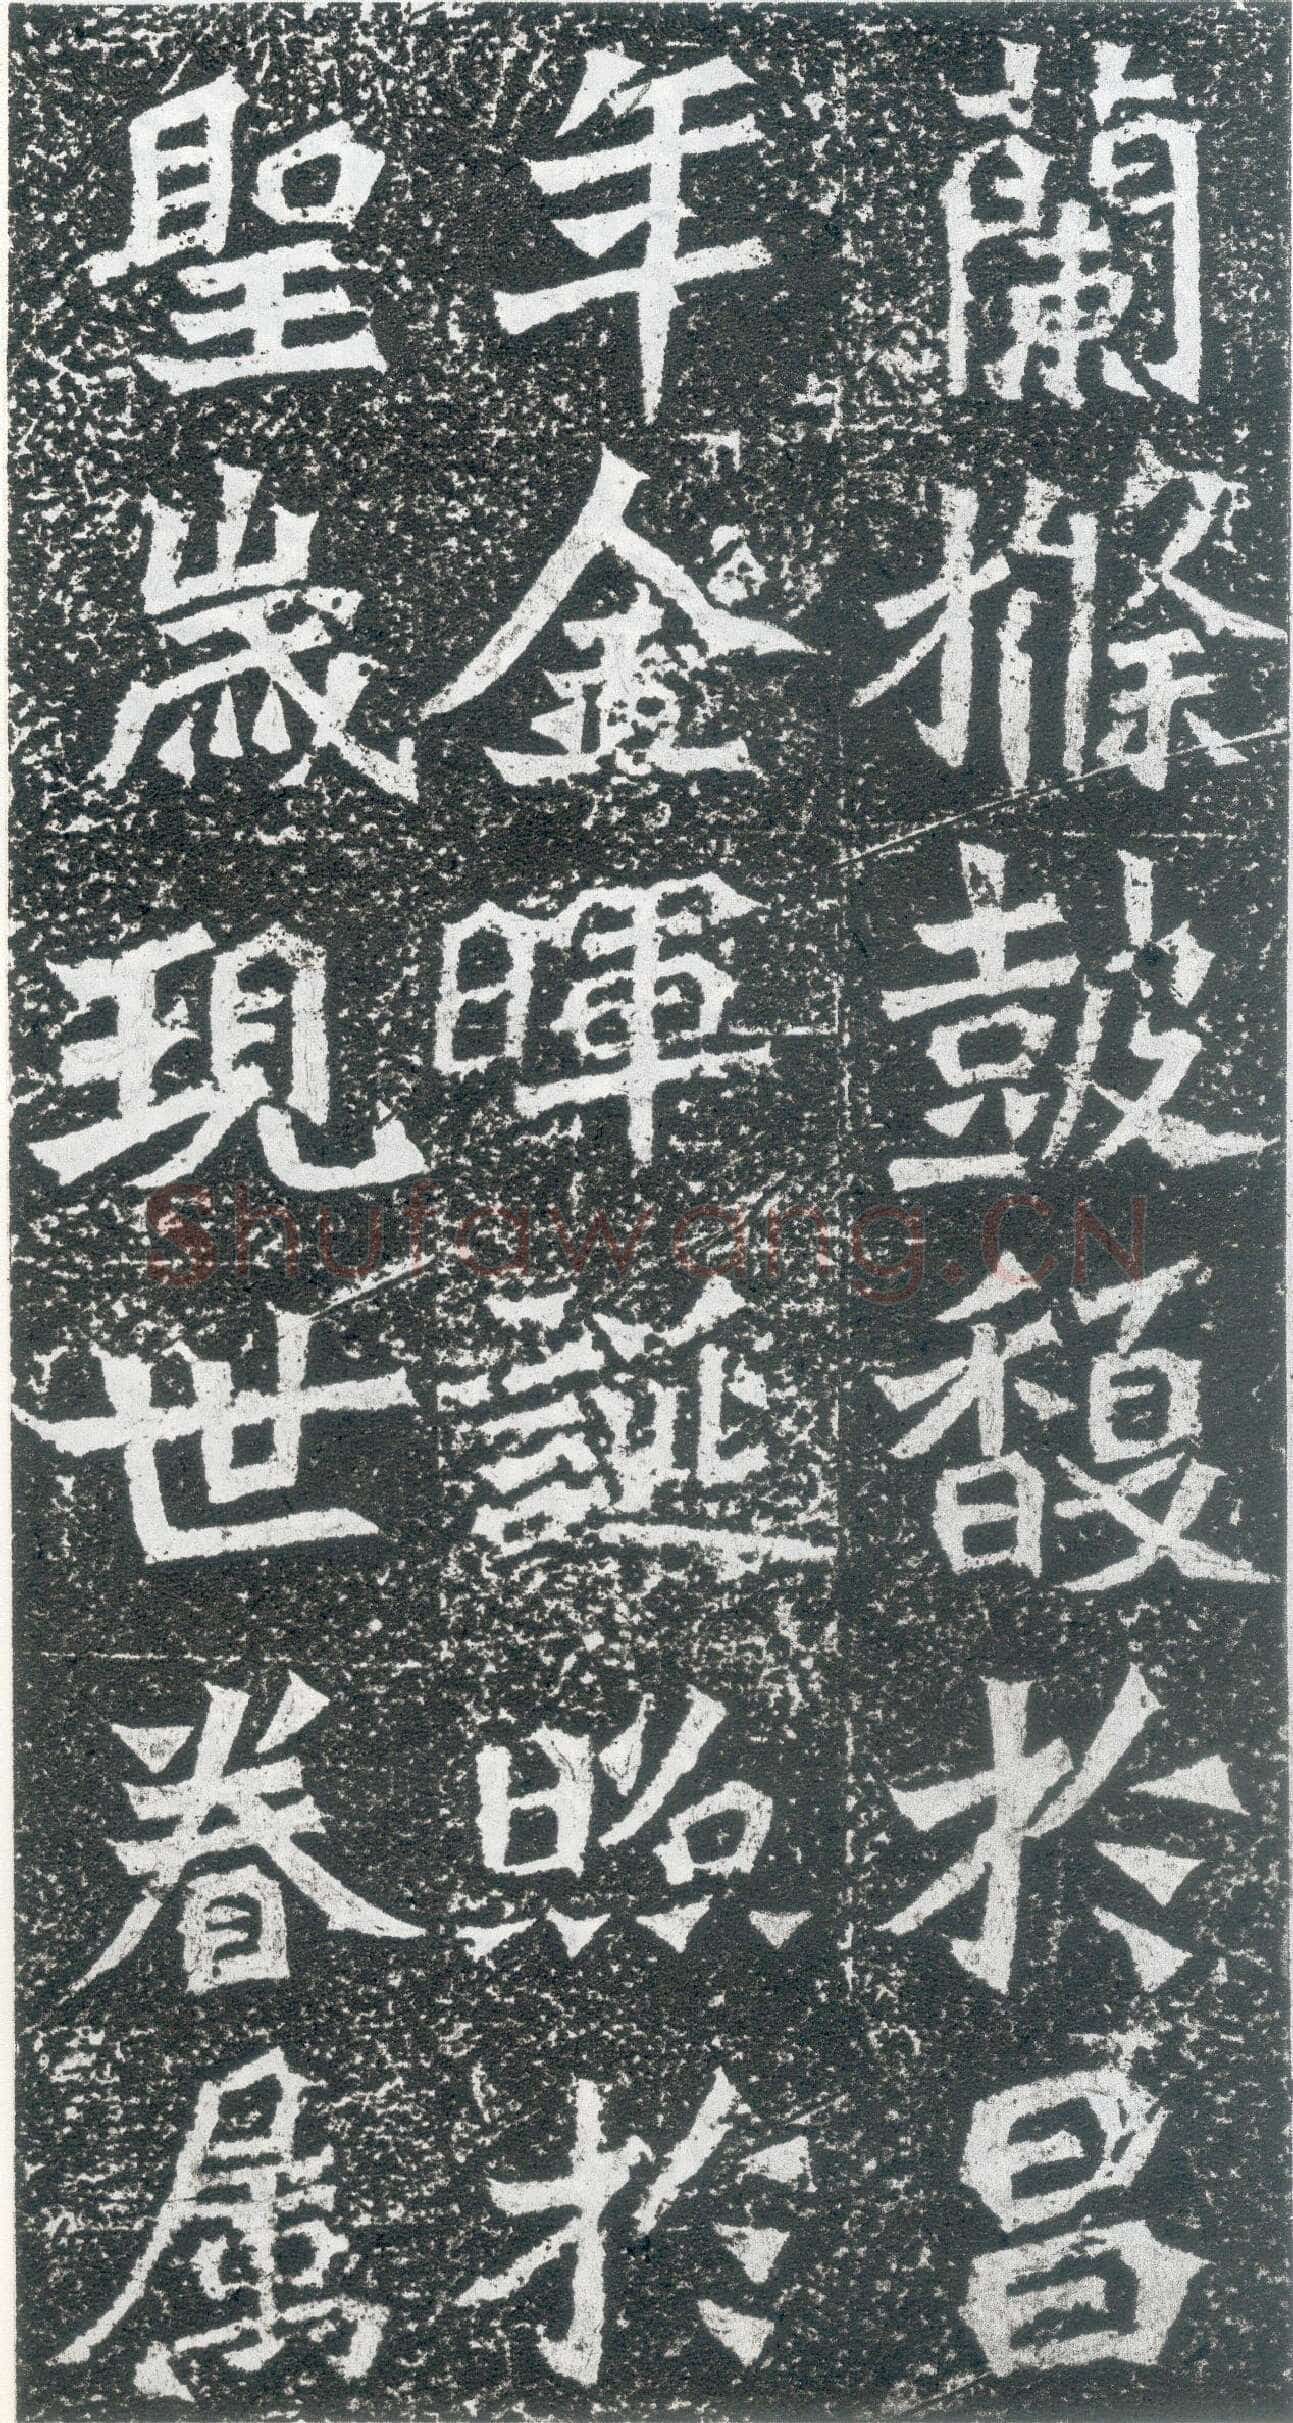 蘭條鼓馥於昌
年金暉誕照於
聖歲現世眷屬
Shufawang.CN